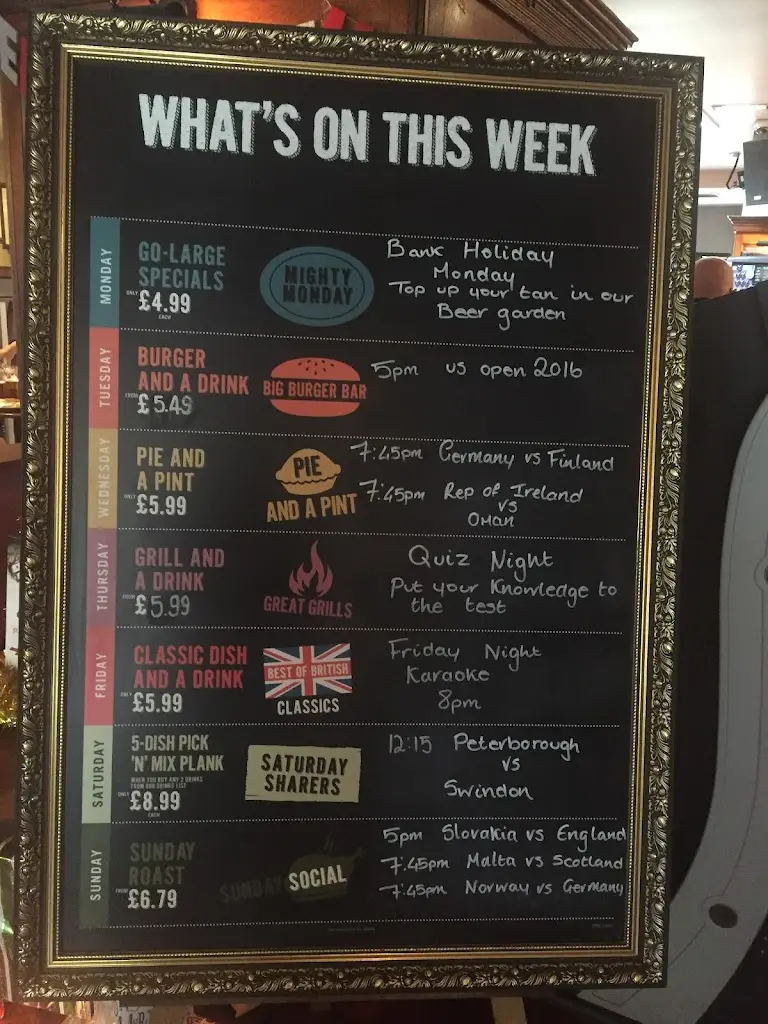 WHAT'S ON THIS WEEK
MONDAY
GO-LARGE
SPECIALS
ONLY £4.99
EACH
MIGHTY
MONDAY
Bank Holiday
Monday
Top up your tan in our
Beer garden
TUESDAY
BURGER
AND A DRINK
FROM £5.49
BIG BURGER BAR
5pm us open 2016
WEDNESDAY
PIE AND
A PINT
ONLY £5.99
PIE
AND A PINT
7:45pm Germany vs Finland
7:45pm Rep of Ireland
vs
Oman
THURSDAY
GRILL AND
A DRINK
FROM £5.99
GREAT GRILLS
Quiz Night
Put your Knowledge to
the test
FRIDAY
CLASSIC DISH
AND A DRINK
ONLY £5.99
BEST OF BRITISH
CLASSICS
Friday Night
Karaoke
8pm
SATURDAY
5-DISH PICK
'N' MIX PLANK
WHEN YOU BUY ANY 2 DRINKS
FROM OUR DRINKS LIST
ONLY £8.99
EACH
SATURDAY
SHARERS
12:15 Peterborough
vs
Swindon
SUNDAY
SUNDAY
ROAST
FROM £6.79
SUNDAY SOCIAL
5pm Slovakia vs England
7:45pm Malta vs Scotland
7:45pm Norway vs Germany